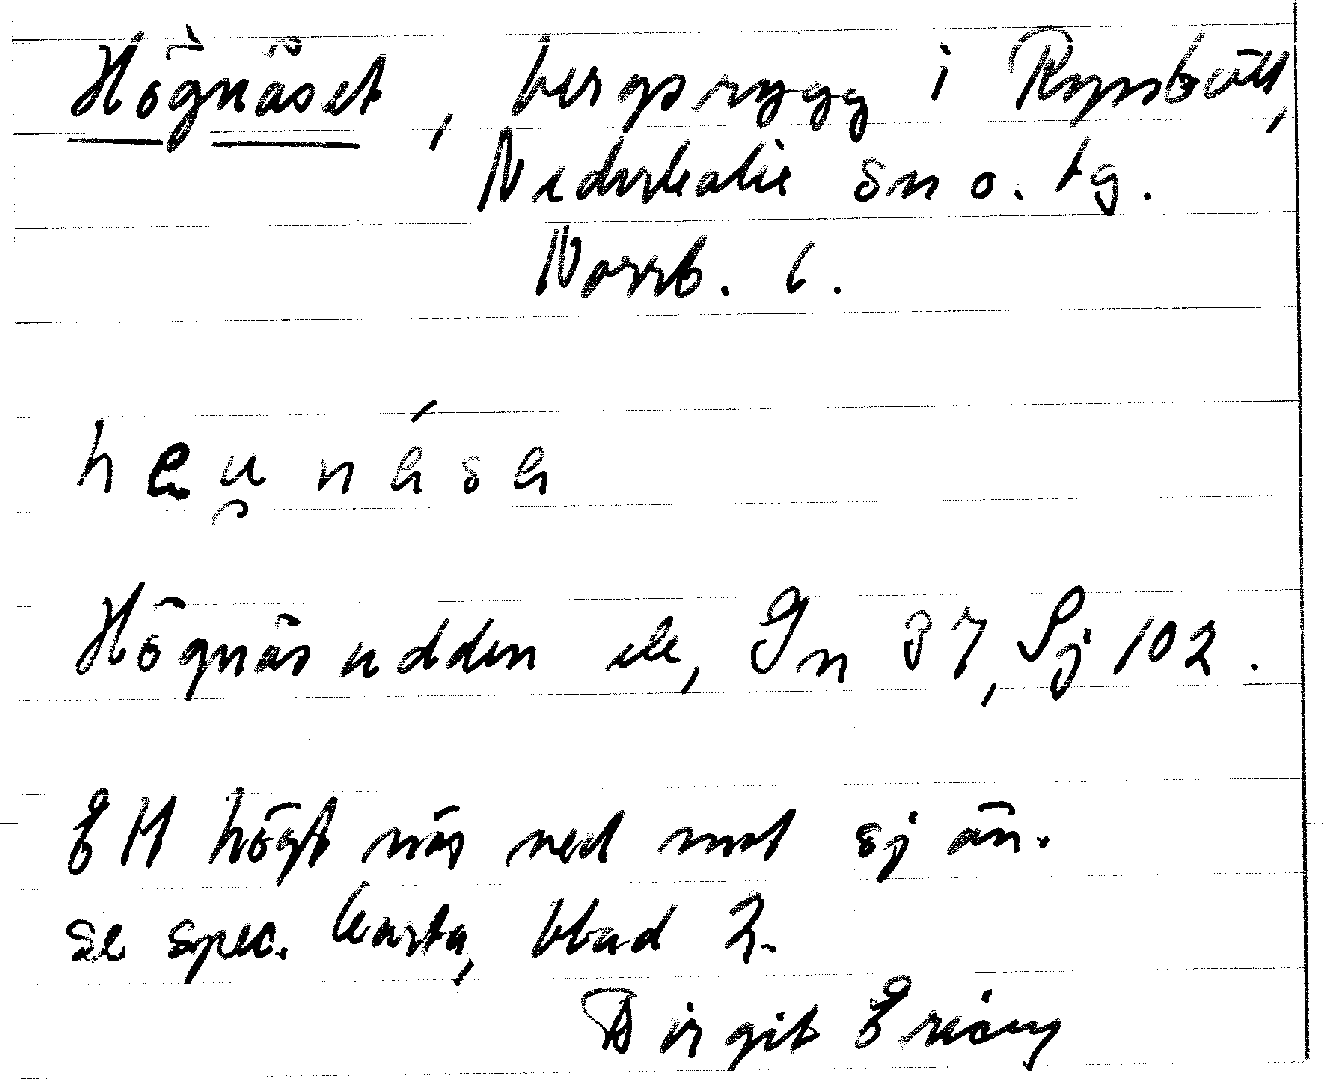 Högnäset, bergsrygg i Ryssbält,
Nederkalix sn o. tg.
Norrb. l.
Högnäsudden ele, Gn 37, Sj 102.
Ett högt näs ned mot sjön.
se spec. karta, blad 2.
Birgit